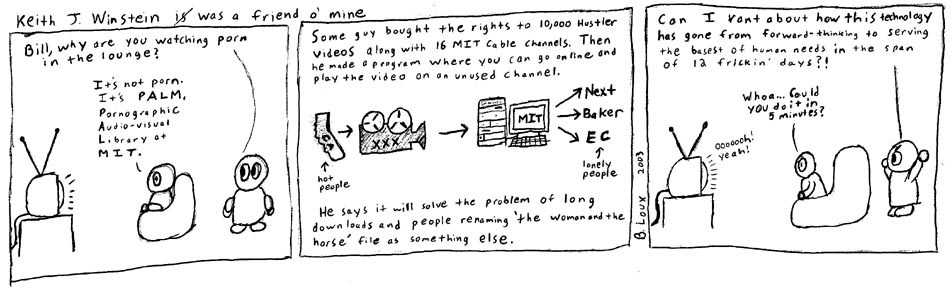 Keith J. Winstein is was a friend o' mine
Bill, why are you watching porn
in the lounge?
It's not porn.
It's PALM.
Pornographic
Audio-visual
Library at
MIT.
Some guy bought the rights to 10,000 Hustler
videos along with 16 MIT Cable channels. Then
he made a program where you can go online and
play the video on an unused channel.
CA
XXX
MIT
Next
Baker
EC
hot
people
lonely
people
He says it will solve the problem of long
downloads and people renaming 'the woman and the
horse' file as something else.
B. LOUX 2003
Can I rant about how this technology
has gone from forward-thinking to serving
the basest of human needs in the span
of 12 frickin' days?!
Whoa... Could
you do it in
5 minutes?
Oooooh!
yeah!